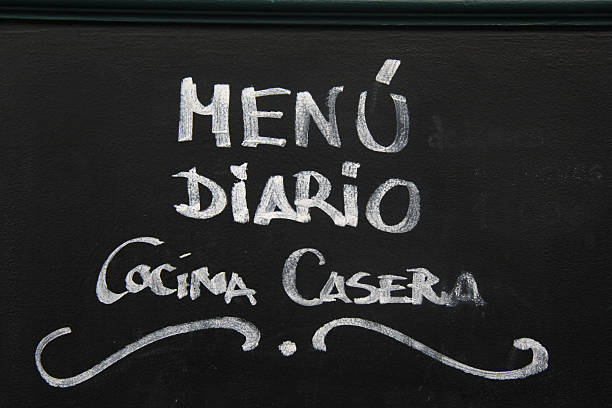 MENÚ
DIARIO
COCINA CASERA